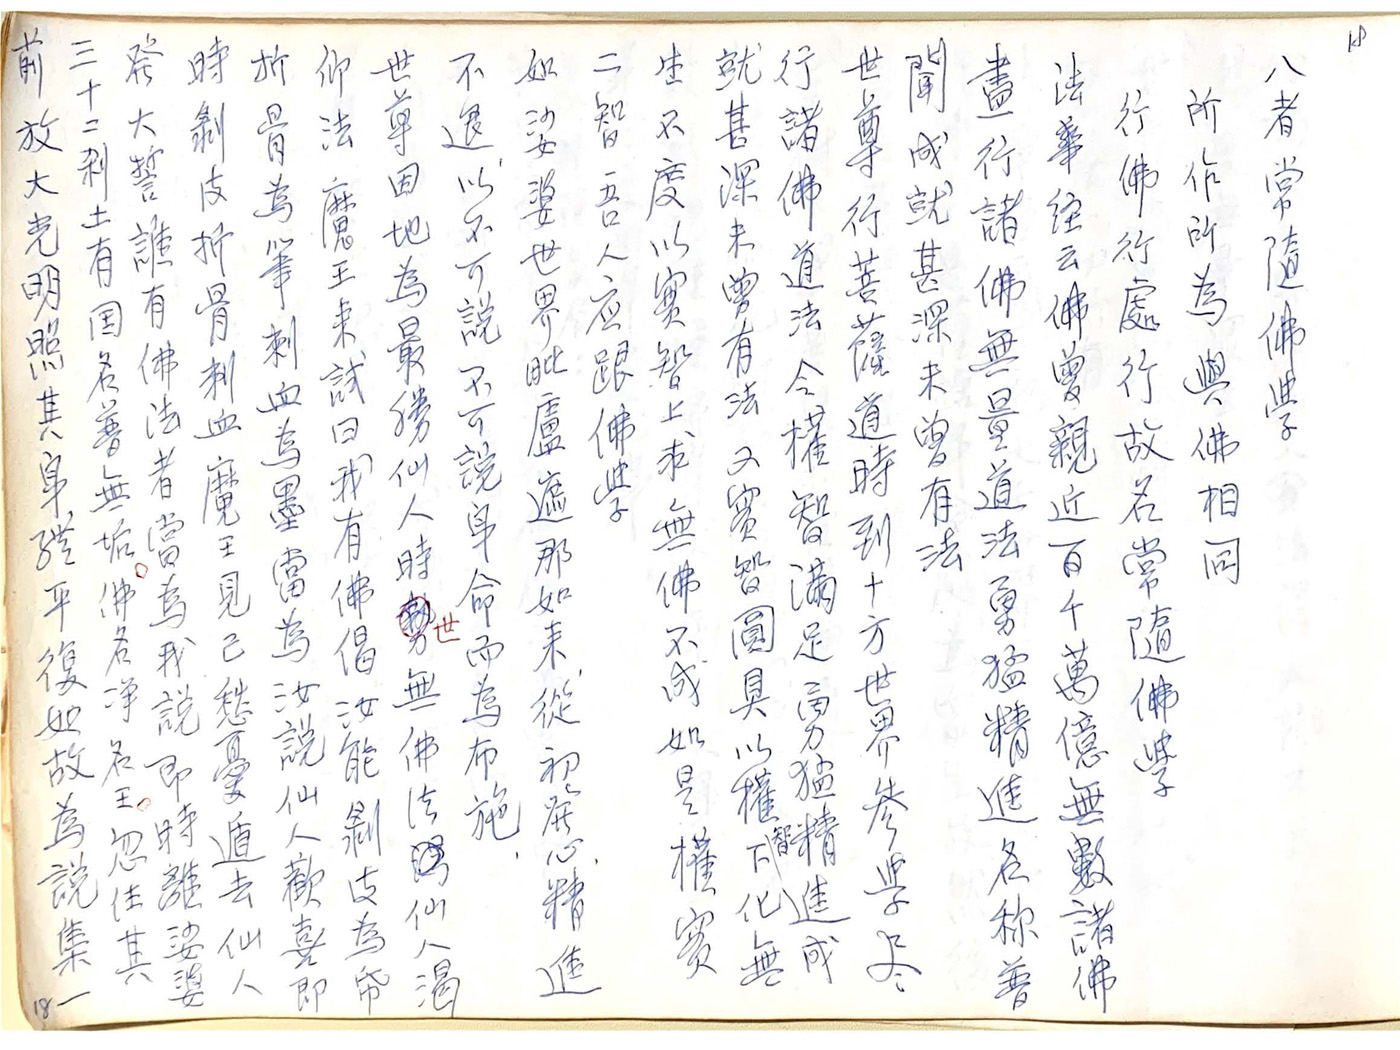 18
八者常隨佛學
所作所為與佛相同
行佛行處行故名常隨佛學
法華經云佛曾親近百千萬億無數諸佛
盡行諸佛無量道法勇猛精進名称普
聞成就甚深未曾有法
世尊行菩薩道時到十方世界參學
行諸佛道法令權智滿足勇猛精進成
就甚深未曾有法又實智圓具以權智下化無
生不度以實智上求無佛不成如是權實
二智吾人應跟佛學
如娑婆世界毗盧遮那如来從初發心精進
不退以不可說不可說身命而為布施
世尊因地為最勝仙人時世無佛法仙人渴
仰法魔王来試曰我有佛偈汝能剝皮為帋
折骨為筆刺血為墨當為汝説仙人歡喜即
時剝皮折骨刺血魔王見已愁憂遁去仙人
發大誓誰有佛法者當為我説即時離娑婆
三十二刹土有国名普無垢佛名淨名王忽住其
前放大光明照其身瘡平復如故為説集一
18